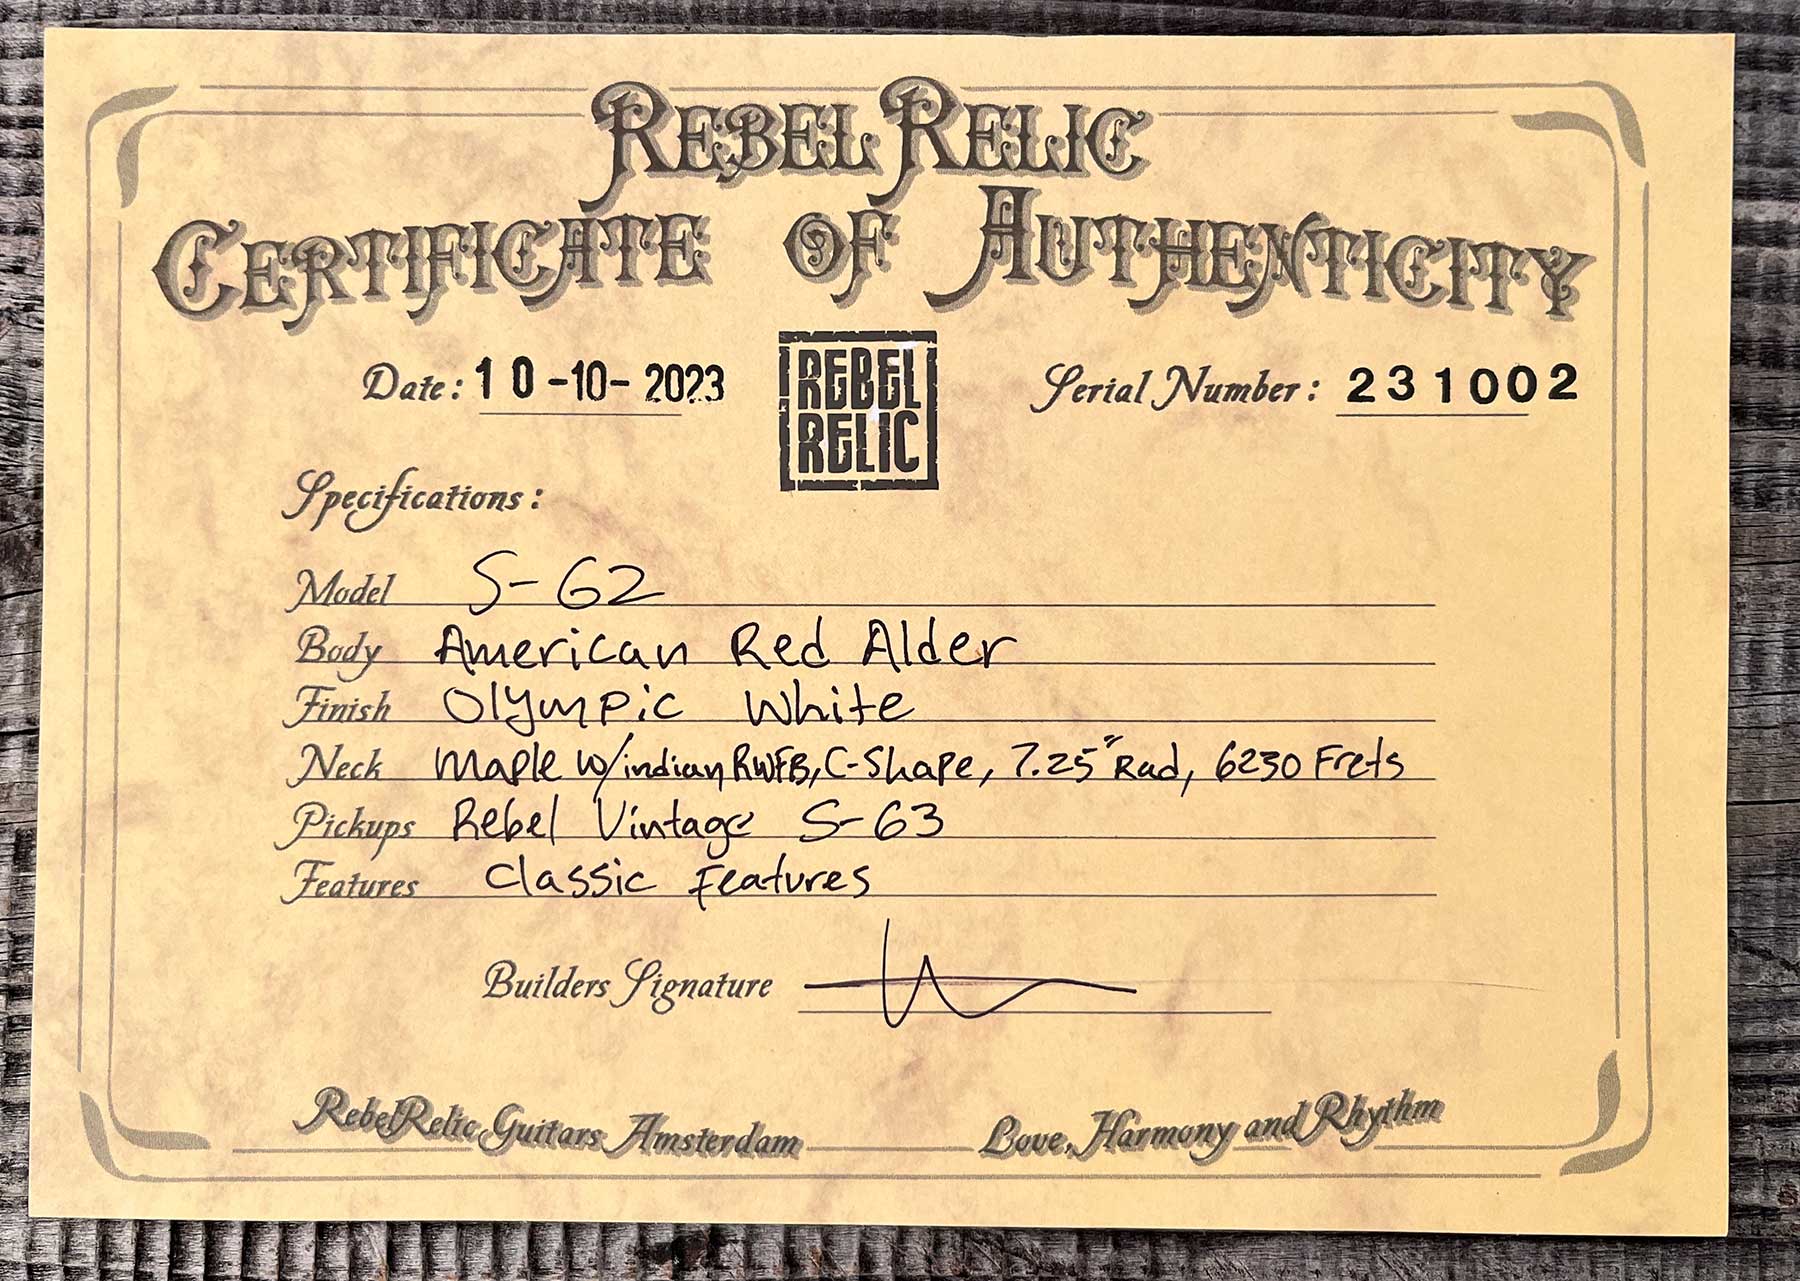 REBEL RELIC
CERTIFICATE OF AUTHENTICITY
Date: 10-10-2023
REBEL
RELIC
Serial Number: 231002
Specifications:
Model S-62
Body American Red Alder
Finish Olympic White
Neck Maple w/indian RWFB, C-Shape, 7.25" Rad, 6230 Frets
Pickups Rebel Vintage S-63
Features Classic Features
Builders Signature
RebelRelic Guitars Amsterdam
Love, Harmony and Rhythm